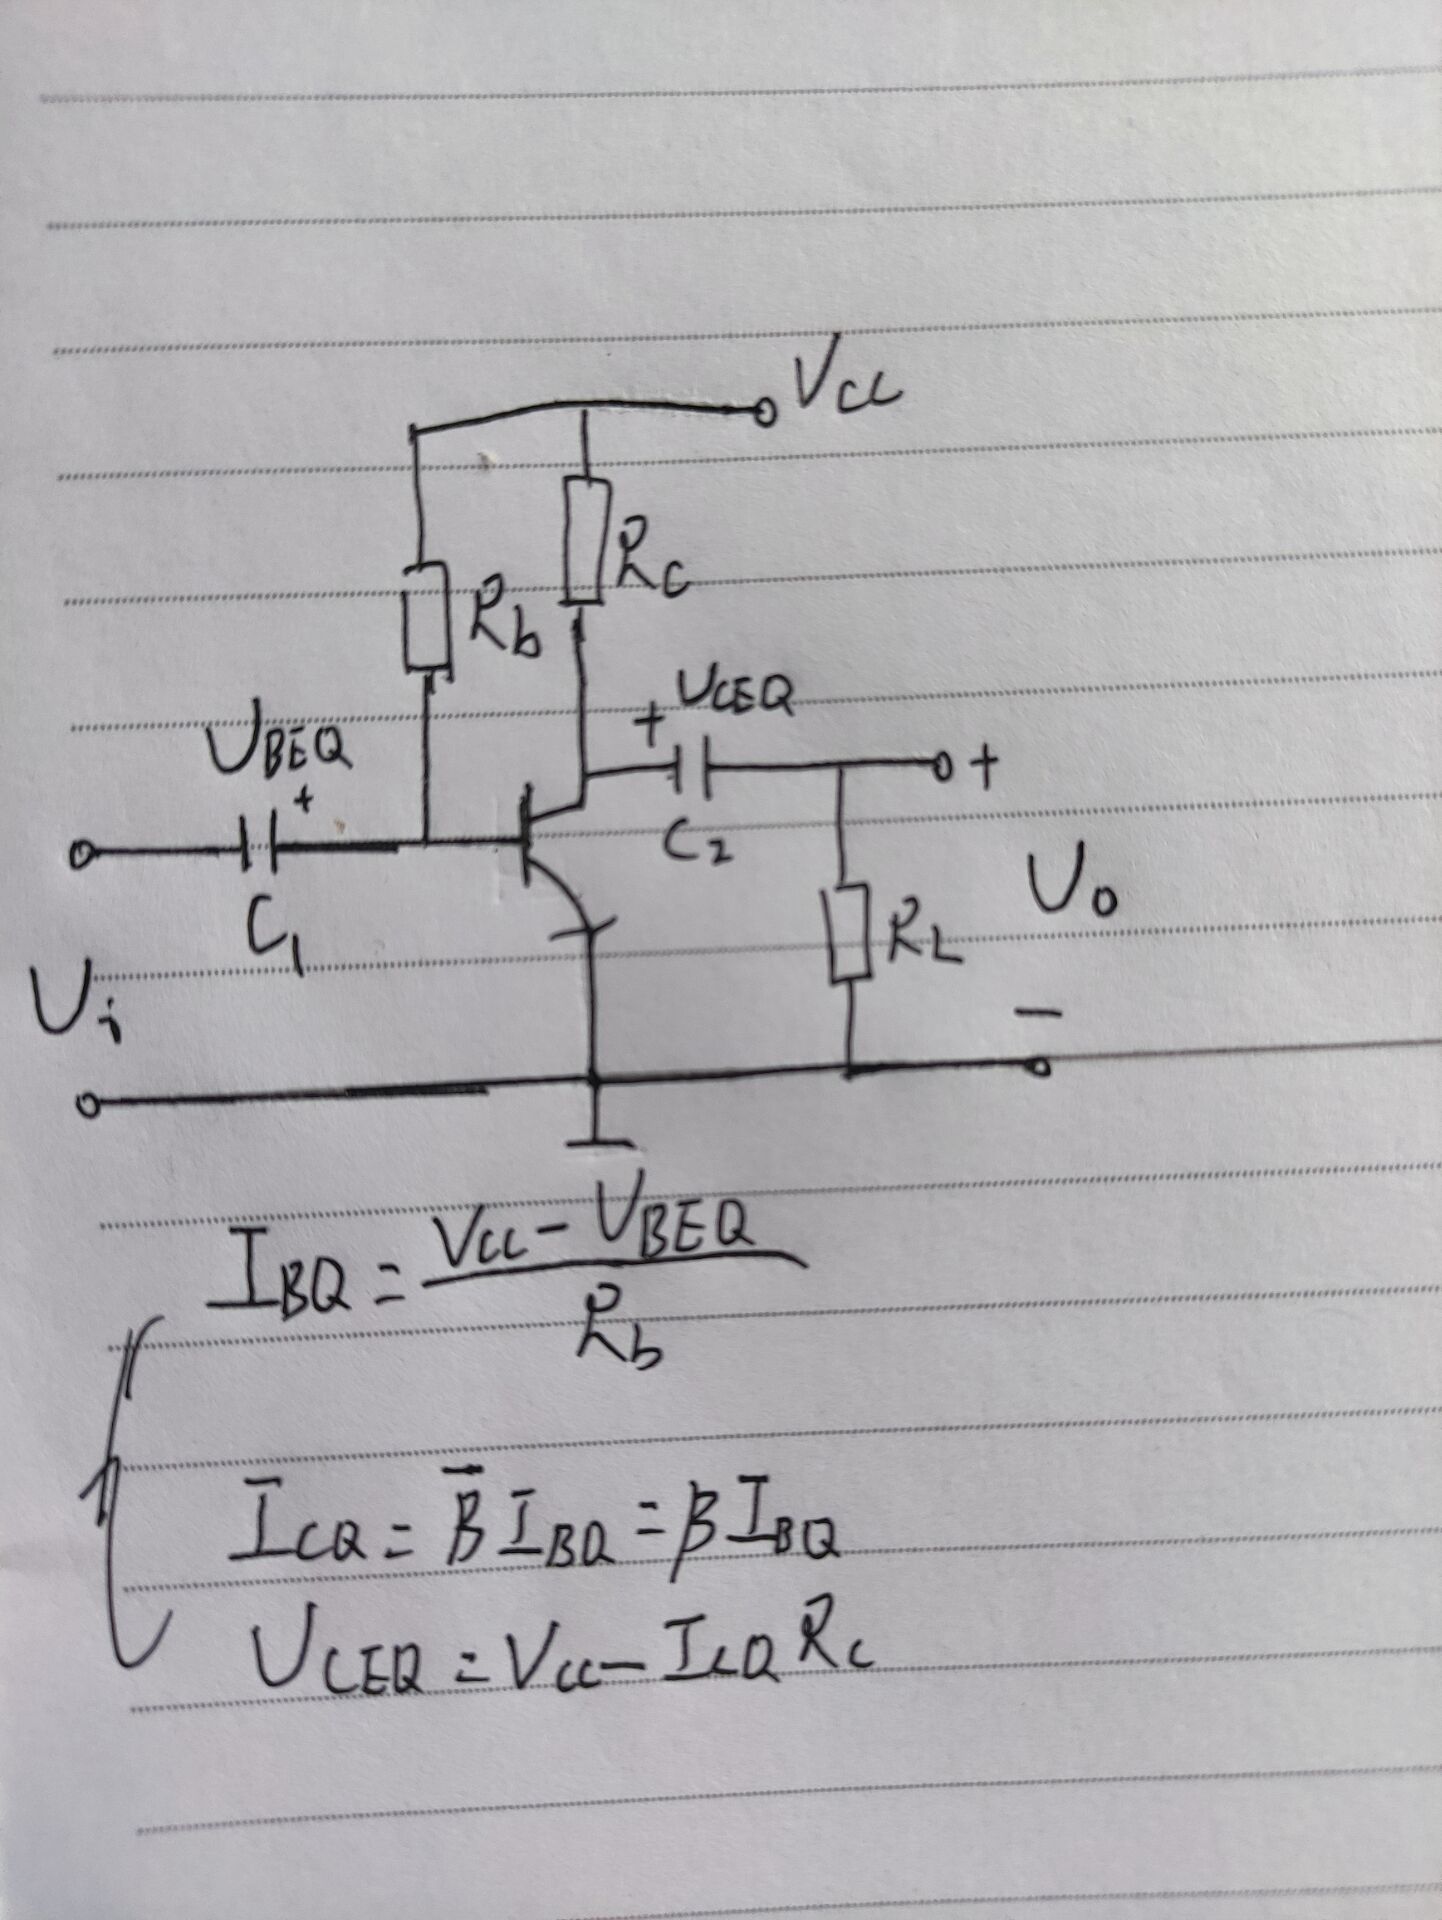 Vcc
Rc
Rb
UCEQ
+
UBEQ
+
+
C2
C1
Uo
RL
Ui
−
IBQ = (Vcc − UBEQ) / Rb
ICQ = β̄ IBQ = β IBQ
UCEQ = Vcc − ICQ Rc